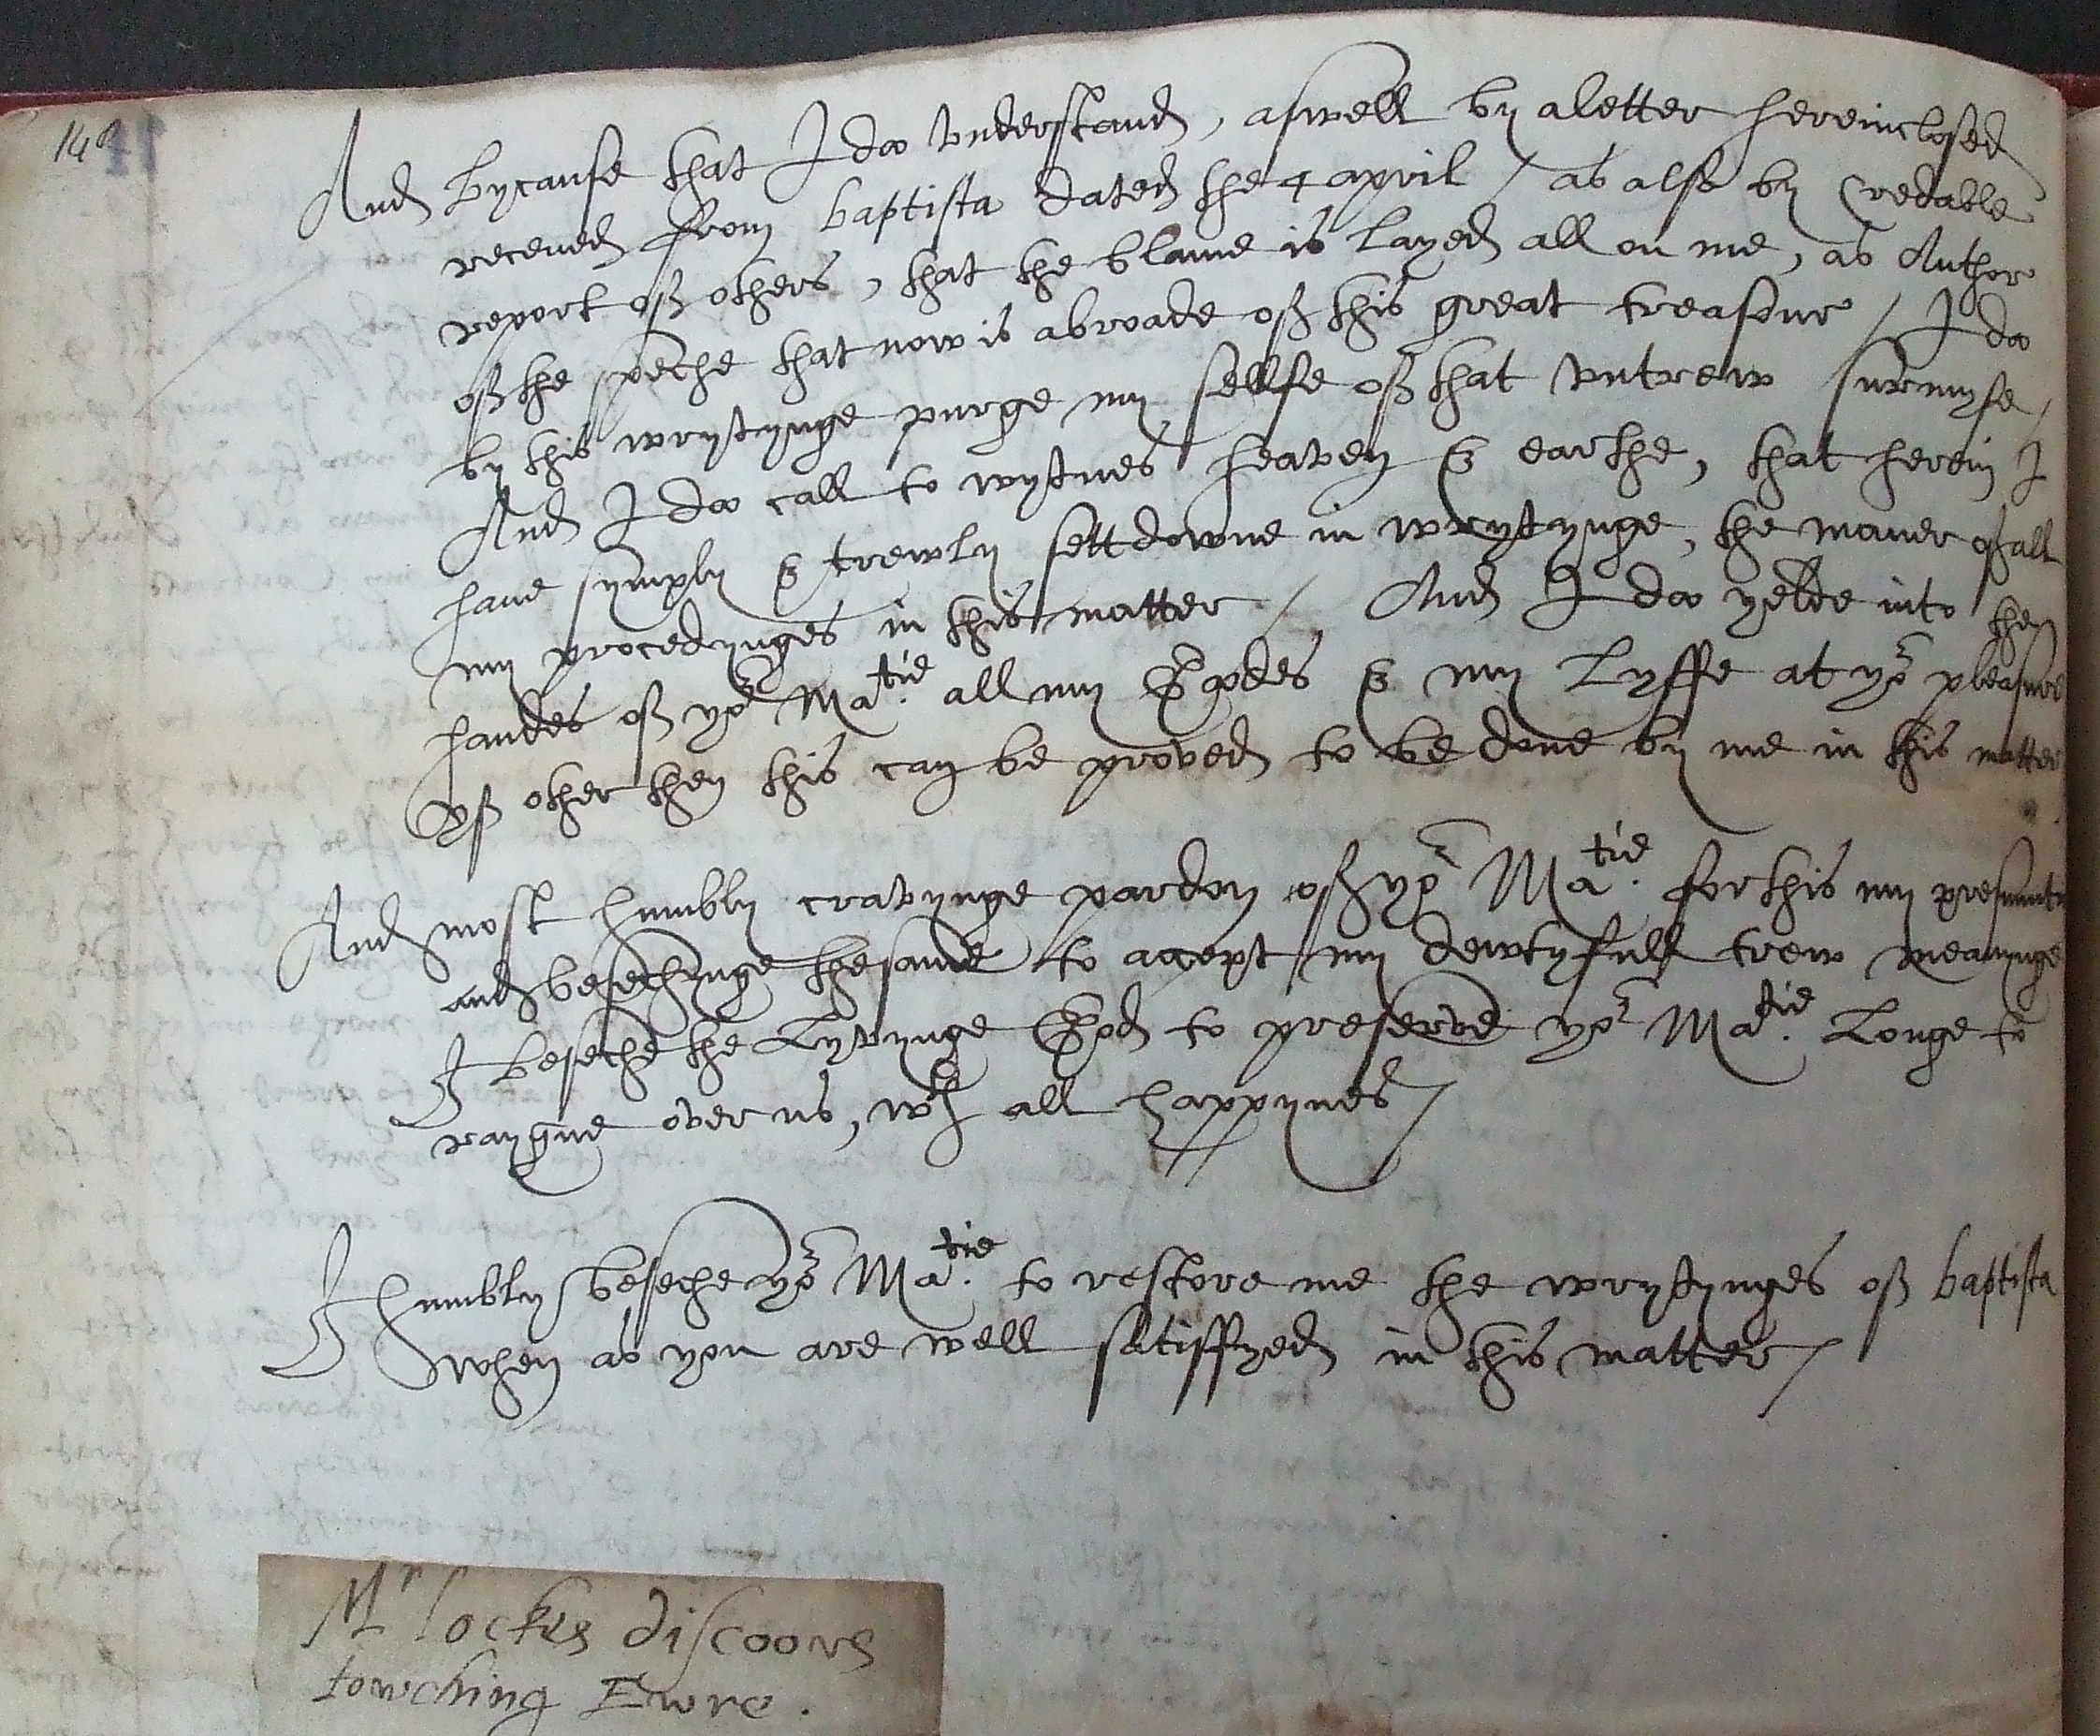 And bycause that I doo vnderstand, aswell by a letter hereinclosed
receued from baptista dated the 4 april / as also by Credable
report off others, that the blame is layed all on me, as Author
off the speche that now is abroade off this great treasour / I doo
by this wrytynge purge my sellfe off that vntrew surmyse /
And I doo call to wytnes heaven & earthe, that herein I
have symply & trewly sett downe in wrytynge, the maner off all
my procedynges in this matter / And I doo yelde into the
handes off yor Matie. all my Goodes & my Lyffe at yor pleasure
yff other then this can be proved to be done by me in this matter
And most humbly cravynge pardon off yor Matie. for this my
and besechynge the same to accept my dewtyfull trew meanynge
I beseche the Lyvynge God to preserve yor Matie. Longe to
raygne over us, wth all happynes /
I humbly beseche yor Matie. to restore me the wrytynges off baptista
when as you are well satisffyed in this matter /
Mr lockes discoors
towching Ewre.